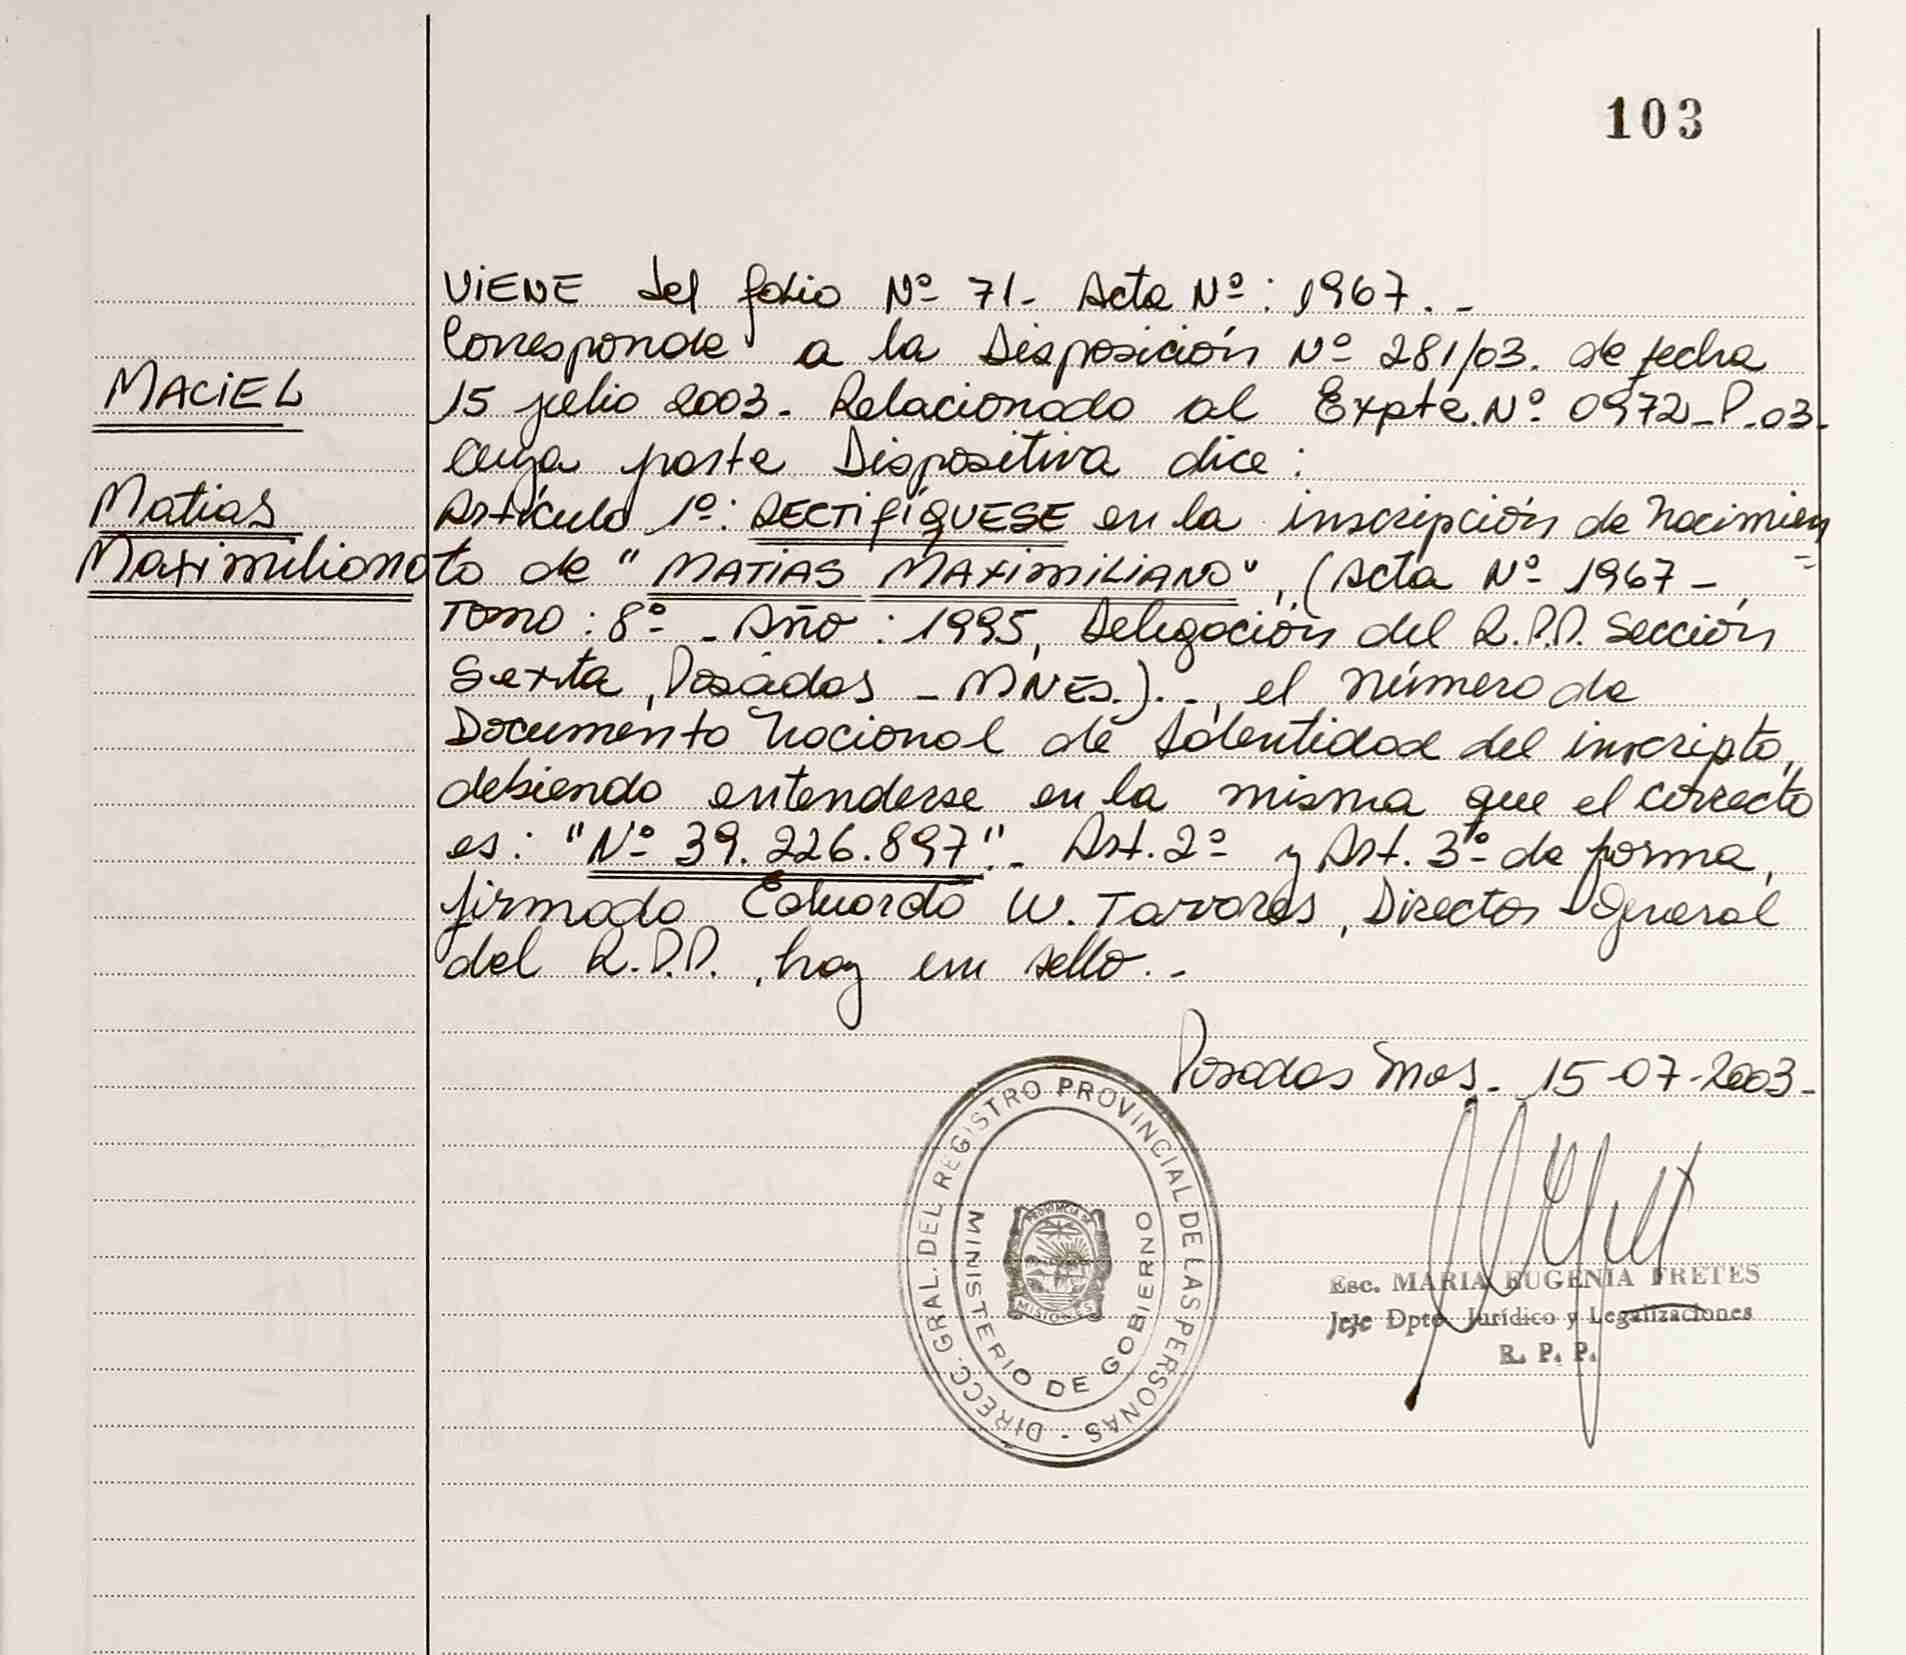 103
VIENE del folio Nº 71- Acta Nº: 1967.-
Corresponde a la Disposición Nº 281/03. de fecha
MACIEL
15 julio 2003- Relacionado al Expte. Nº 0972-P-03-
cuya parte Dispositiva dice:
Matias
Artículo 1º: RECTIFÍQUESE en la inscripción de Nacimien
Maximiliano
to de "MATIAS MAXIMILIANO", (Acta Nº 1967-,
Tomo: 8º - Año: 1995, Delegación del R.P.P. Sección
Sexta, Posadas - MNES.).-, el número de
Documento Nacional de Identidad del inscripto,
debiendo entenderse en la misma que el correcto
es: "Nº 39.226.897".- Art. 2º y Art. 3º de forma,
firmado Eduardo W. Tavares, Director General
del R.P.P., hay un sello.-
Posadas Mnes. 15-07-2003-
DIRECC. GRAL. DEL REGISTRO PROVINCIAL DE LAS PERSONAS -
MINISTERIO DE GOBIERNO
PROVINCIA DE
MISIONES
Esc. MARIA EUGENIA FRETES
Jefe Dpto. Jurídico y Legalizaciones
R. P. P.